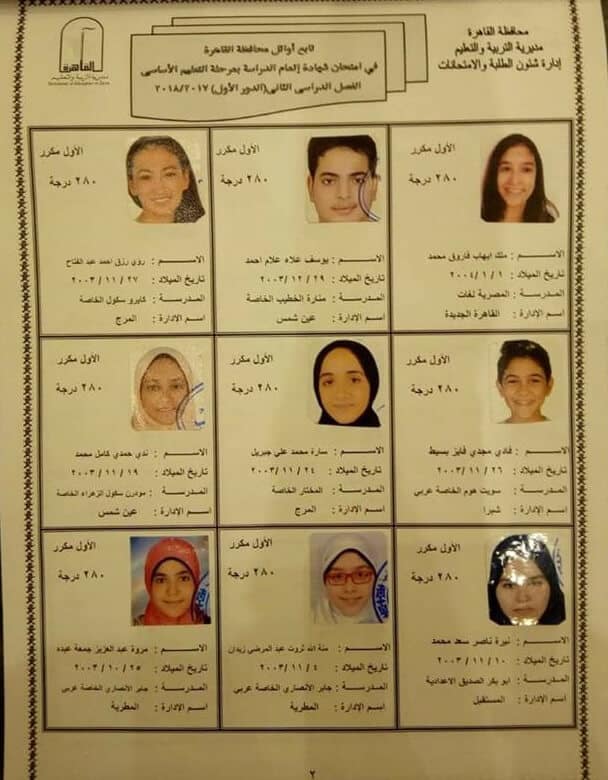 محافظة القاهرة
مديرية التربية والتعليم
إدارة شئون الطلبة والامتحانات
تابع أوائل محافظة القاهرة
في امتحان شهادة إتمام الدراسة بمرحلة التعليم الأساسى
الفصل الدراسى الثانى (الدور الأول) ٢٠١٨/٢٠١٧
القاهرة
مديرية التربية والتعليم
الأول مكرر
٢٨٠ درجة
الاســـم : ملك ايهاب فاروق محمد
تاريخ الميلاد : ١ / ١ / ٢٠٠٤
المدرســة : المصرية لغات
اسم الإدارة : القاهرة الجديدة
الأول مكرر
٢٨٠ درجة
الاســـم : يوسف علاء علام احمد
تاريخ الميلاد : ٢٩ / ١٢ / ٢٠٠٣
المدرســة : منارة الخطيب الخاصة
اسم الإدارة : عين شمس
الأول مكرر
٢٨٠ درجة
الاســـم : روي رزق احمد عبد الفتاح
تاريخ الميلاد : ٢٧ / ١١ / ٢٠٠٣
المدرســة : كايرو سكول الخاصة
اسم الإدارة : المرج
الأول مكرر
٢٨٠ درجة
الاســـم : فادي مجدي فايز بسيط
تاريخ الميلاد : ٢٦ / ١١ / ٢٠٠٣
المدرسة : سويت هوم الخاصة عربي
اسم الإدارة : شبرا
الأول مكرر
٢٨٠ درجة
الاســـم : سارة محمد علي جبريل
تاريخ الميلاد : ٢٤ / ١١ / ٢٠٠٣
المدرســة : المختار الخاصة
اسم الإدارة : المرج
الأول مكرر
٢٨٠ درجة
الاســـم : ندي حمدي كامل محمد
تاريخ الميلاد : ١٩ / ١١ / ٢٠٠٣
المدرسة : مودرن سكول الزهراء الخاصة
اسم الإدارة : عين شمس
الأول مكرر
٢٨٠ درجة
الاســـم : نيرة ناصر سعد محمد
تاريخ الميلاد : ١٠ / ١١ / ٢٠٠٣
المدرسة : ابو بكر الصديق الاعدادية
اسم الإدارة : المستقبل
الأول مكرر
٢٨٠ درجة
الاســـم : منة الله ثروت عبد المرضي زيدان
تاريخ الميلاد : ٤ / ١١ / ٢٠٠٣
المدرسة : جابر الانصاري الخاصة عربي
اسم الإدارة : المطرية
الأول مكرر
٢٨٠ درجة
الاســـم : مروة عبد العزيز جمعة عبده
تاريخ الميلاد : ٢٥ / ١٠ / ٢٠٠٣
المدرسة : جابر الانصاري الخاصة عربي
اسم الإدارة : المطرية
٢